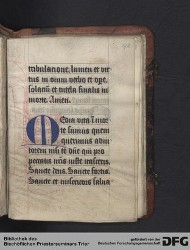 tribulatione, lumen et vir
tus in omni verbo et ope,
solami et tutela finalis in
morte. Amen.
Media vita in mor
te sumus quem
querimus adiu
torem nisi te dñe qui pro
peccatis nr̄is iuste irasceris.
Sancte deus. Sancte fortis.
Sancte et misericors salua
Bibliothek des
Bischöflichen Priesterseminars Trier
gefördert von der
Deutsche Forschungsgemeinschaft
DFG